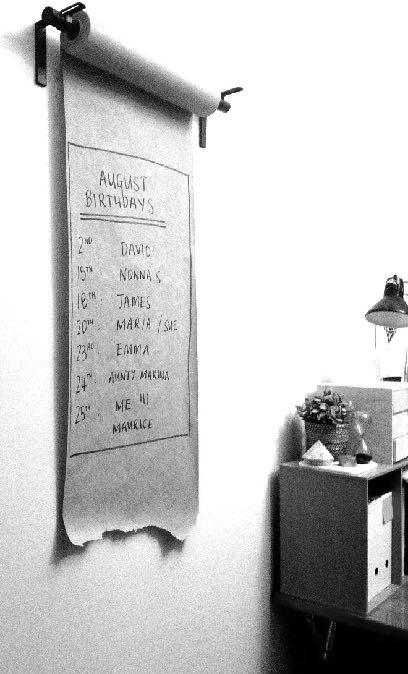 AUGUST
BIRTHDAYS
2ND DAVID
15TH NONNA S
18TH: JAMES
20TH: MARIA / SUE
23RD EMMA
24TH AUNTY MARINA
25TH: ME !!!
MAURICE